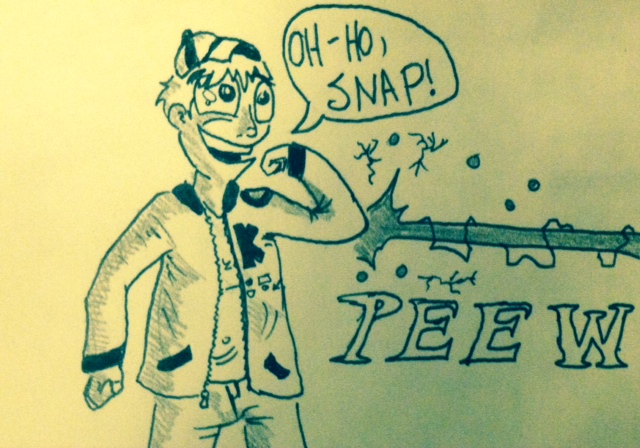 OH-HO,
SNAP!
PEEW